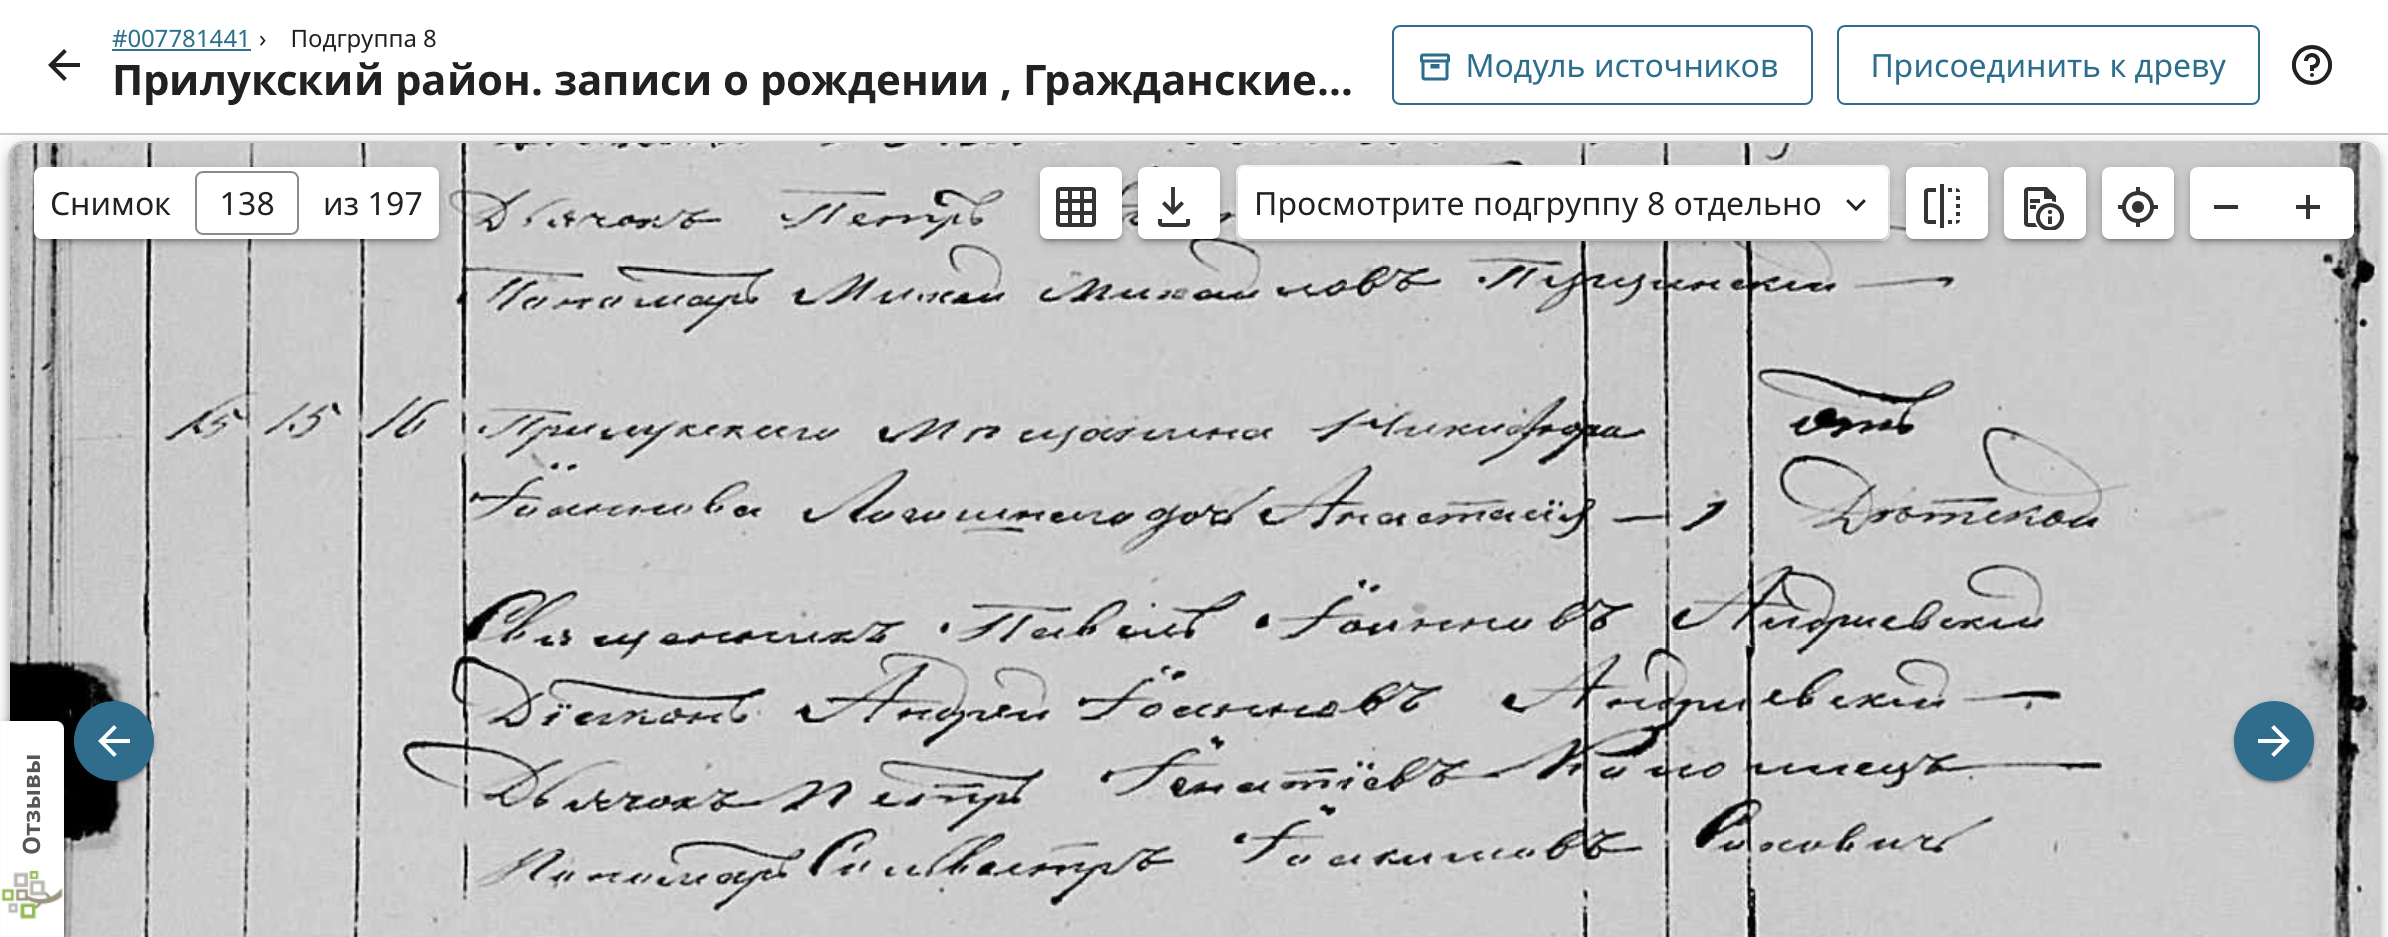 #007781441 › Подгруппа 8
Прилукский район. записи о рождении , Гражданские...
Модуль источников
Присоединить к древу
Снимок 138 из 197
Просмотрите подгруппу 8 отдельно
Дьячокъ Петръ
Пономарь Михаил Михайловъ
15 15 16 Прилукскаго Мещанина Никифора
Іоаннова дочь Анастасія — 1
отъ
Дѣтской
Священникъ Павелъ Іоанновъ Андриевскій
Діяконъ Андрей Іоанновъ Андриевскій —
Дьячокъ Петръ Игнатіевъ —
Пономарь Силвестръ Іоакимовъ
Отзывы